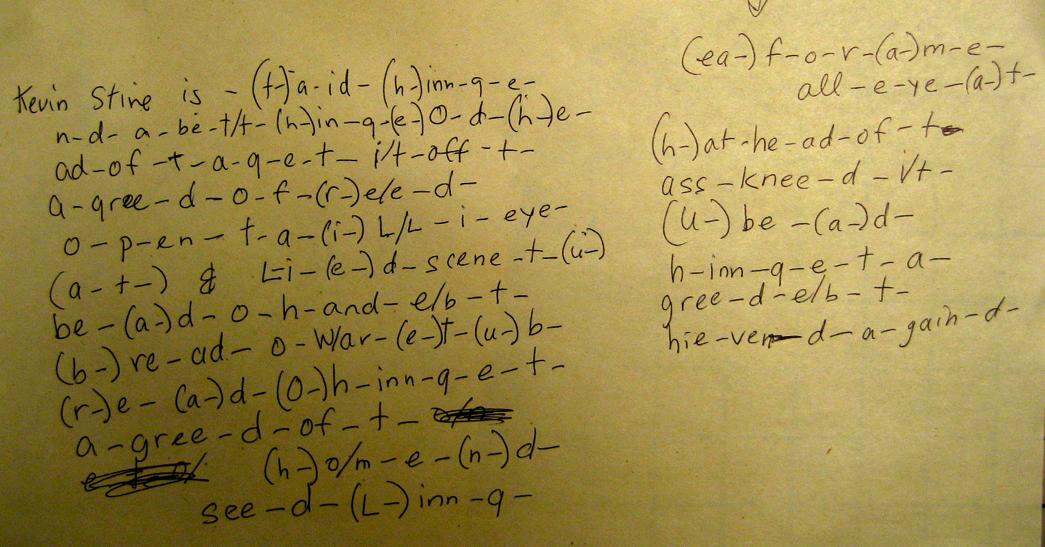 Kevin Stine is - (t-)a-id-(h-)inn-q-e-
n-d- a-be-t/t-(h-)in-q-(e-)O-d-(h-)e-
ad-of-t-a-q-e-t- i/t-off-t-
a-gree-d-o-f-(r-)e/e-d-
o-p-en-t-a-(i-) L/L-i-eye-
(a-t-) & L-i-(e-)d-scene-t-(u-)
be-(a-)d-o-h-and-e/b-t-
(b-)re-ad-o-w/ar-(e-)t-(u-)b-
(r-)e-(a-)d-(O-)h-inn-q-e-t-
a-gree-d-of-t-
(h-)o/m-e-(n-)d-
see-d-(L-)inn-q-
(ea-)f-o-r-(a-)m-e-
all-e-ye-(a-)t-
(h-)at-he-ad-of-t-
ass-knee-d-i/t-
(u-)be-(a-)d-
h-inn-q-e-t-a-
gree-d-e/b-t-
hie-ven-d-a-gain-d-